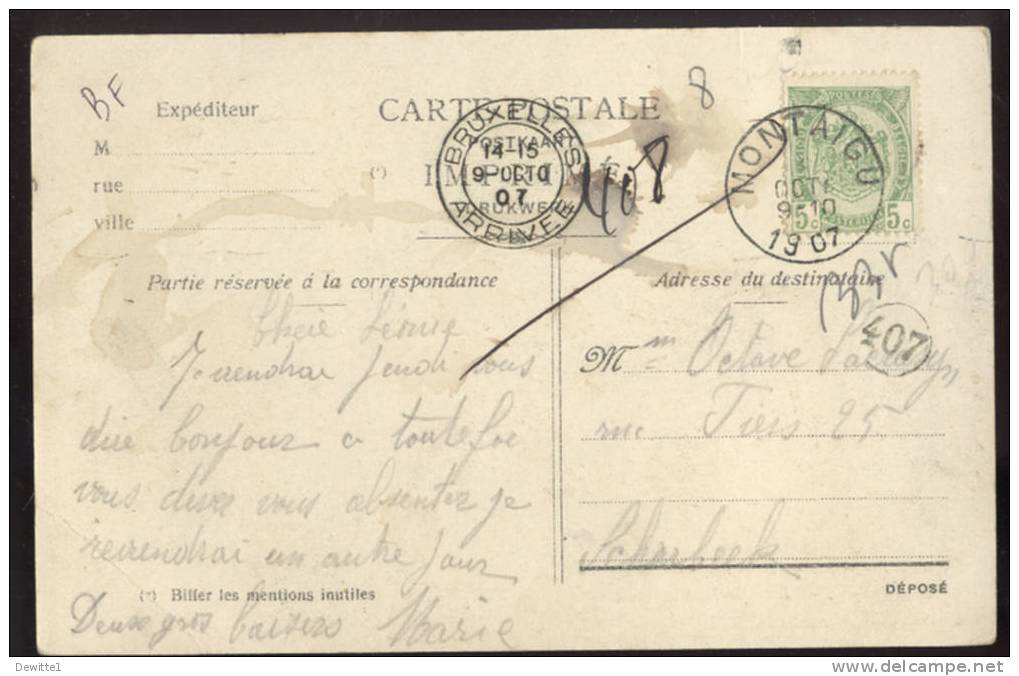 BF
Expéditeur
M
rue
ville
CARTE POSTALE
POSTKAART
(*)
IMPRIMÉ
DRUKWERK
BRUXELLES
14-15
9 OCTO
07
ARRIVÉE
408
8
MONTAIGU
OCT
9 10
1907
5c 5c
407
Partie réservée á la correspondance
Adresse du destinataire
Chère Léonie
Je viendrai jeudi vous
dire bonjour a toutefoi
vous devez vous absenter je
reviendrai un autre jour
Deux gros baisers Marie
(*) Biffer les mentions inutiles
Mm Octave
rue Tiers 25
Schrbeek
DÉPOSÉ
Dewitte1
www.delcampe.net